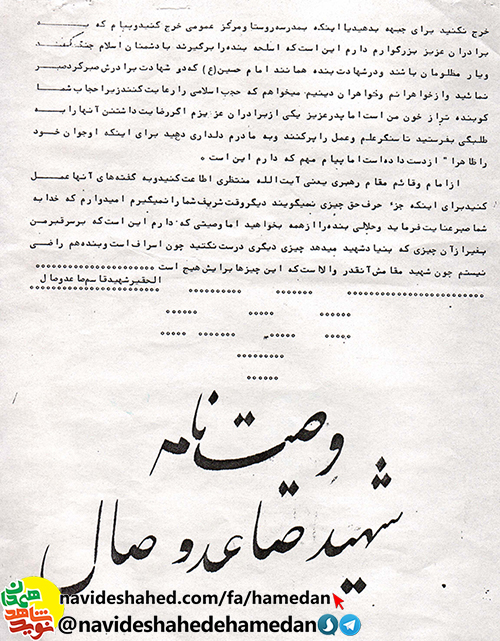 خرج نکنید برای جبهه بدهید یا اینکه بمدرسه روستا ومرکز عمومی خرج کنیدوپیام که به
برادران عزیز بزرگوارم دارم این است که اسلحه بنده را برگیرند بادشمنان اسلام جنگ کنند
ویار مظلومان باشند ودرشهادت بنده همانند امام حسین(ع) که دو شهادت برادرش صبرکرد صبر
نمائید واز خواهرانم وخواهران دینیم میخواهم که حجب اسلامی را رعایت کنند زیرا حجاب شما
کوبنده تر از خون من است اما پدر عزیز یکی از برادران عزیزم اگر رضایت داشتن آنها را به
طلبگی بفرستید تا سنگر علم وعمل را پرکنند وبه مادرم دلداری دهید برای اینکه اوجوان خود
را ظاهرا" از دست داده است اما پیام مهم که دارم این است ٠
از امام وقائم مقام رهبری یعنی آیت الله منتظری اطاعت کنید وبه گفته های آنها عمل
کنید برای اینکه جزء حرف حق چیزی نمیگویند دیگر وقت شریف شما را نمیگیرم امیدوارم که خدا به
شما صبر عنایت فرماید وحلالی بنده را از همه بخواهید اما وصیتی که دارم این است که برسرقبر من
بغیر از آن چیزی که بنیاد شهید میدهد چیزی دیگری درست نکنید چون اسراف است وبنده هم راضی
نیستم چون شهید مقامش آنقدر والا است که این چیزها برایش هیچ است
الحقیر شهید قاسم صاعد وصال
وصیت نامه
شهید صاعد وصال
نوید شاهد همدان
navideshahed.com/fa/hamedan
@navideshahedehamedan